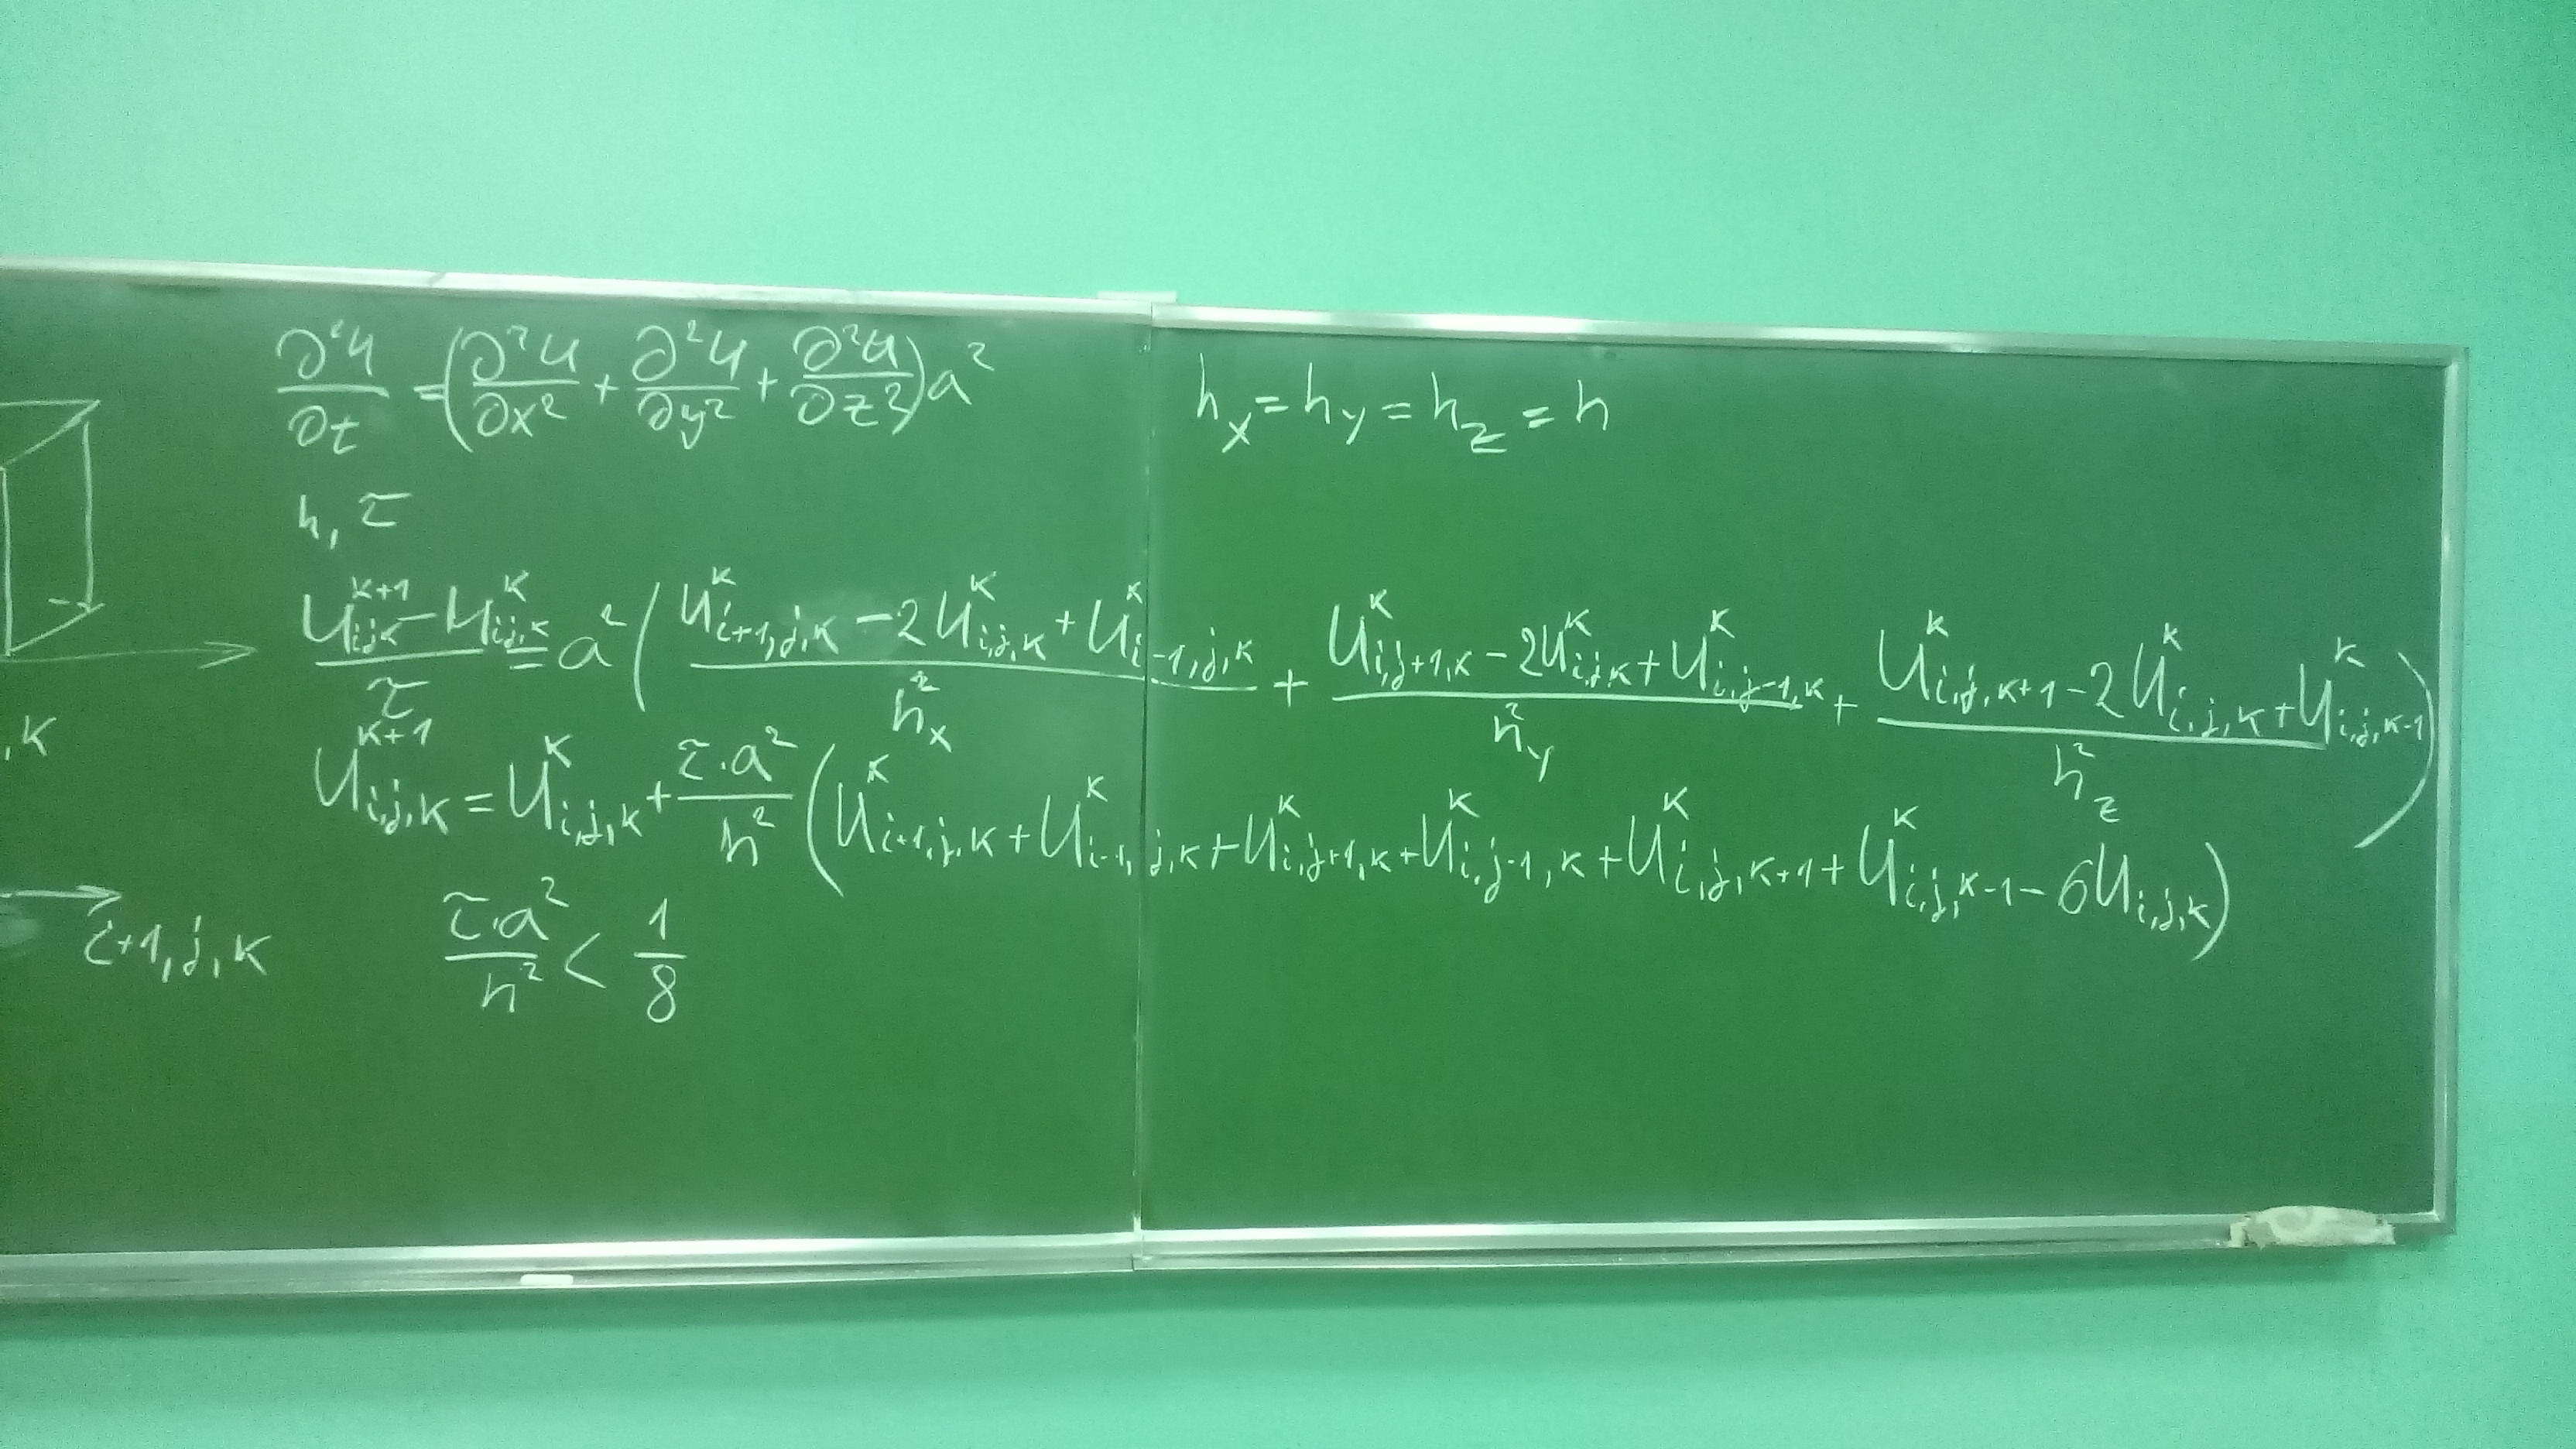 ∂²u/∂t = (∂²u/∂x² + ∂²u/∂y² + ∂²u/∂z²)a²
h_x = h_y = h_z = h
h, τ
(u_{ijk}^{k+1} - u_{ij,k}^{k})/τ = a²((u_{i+1,j,k}^{k} - 2u_{i,j,k}^{k} + u_{i-1,j,k}^{k})/h_x² + (u_{i,j+1,k}^{k} - 2u_{i,j,k}^{k} + u_{i,j-1,k}^{k})/h_y² + (u_{i,j,k+1}^{k} - 2u_{i,j,k}^{k} + u_{i,j,k-1}^{k})/h_z²)
,k
u_{i,j,k}^{k+1} = u_{i,j,k}^{k} + τ·a²/h² (u_{i+1,j,k}^{k} + u_{i-1,j,k}^{k} + u_{i,j+1,k}^{k} + u_{i,j-1,k}^{k} + u_{i,j,k+1}^{k} + u_{i,j,k-1}^{k} - 6u_{i,j,k})
i+1,j,k
τ·a²/h² < 1/8